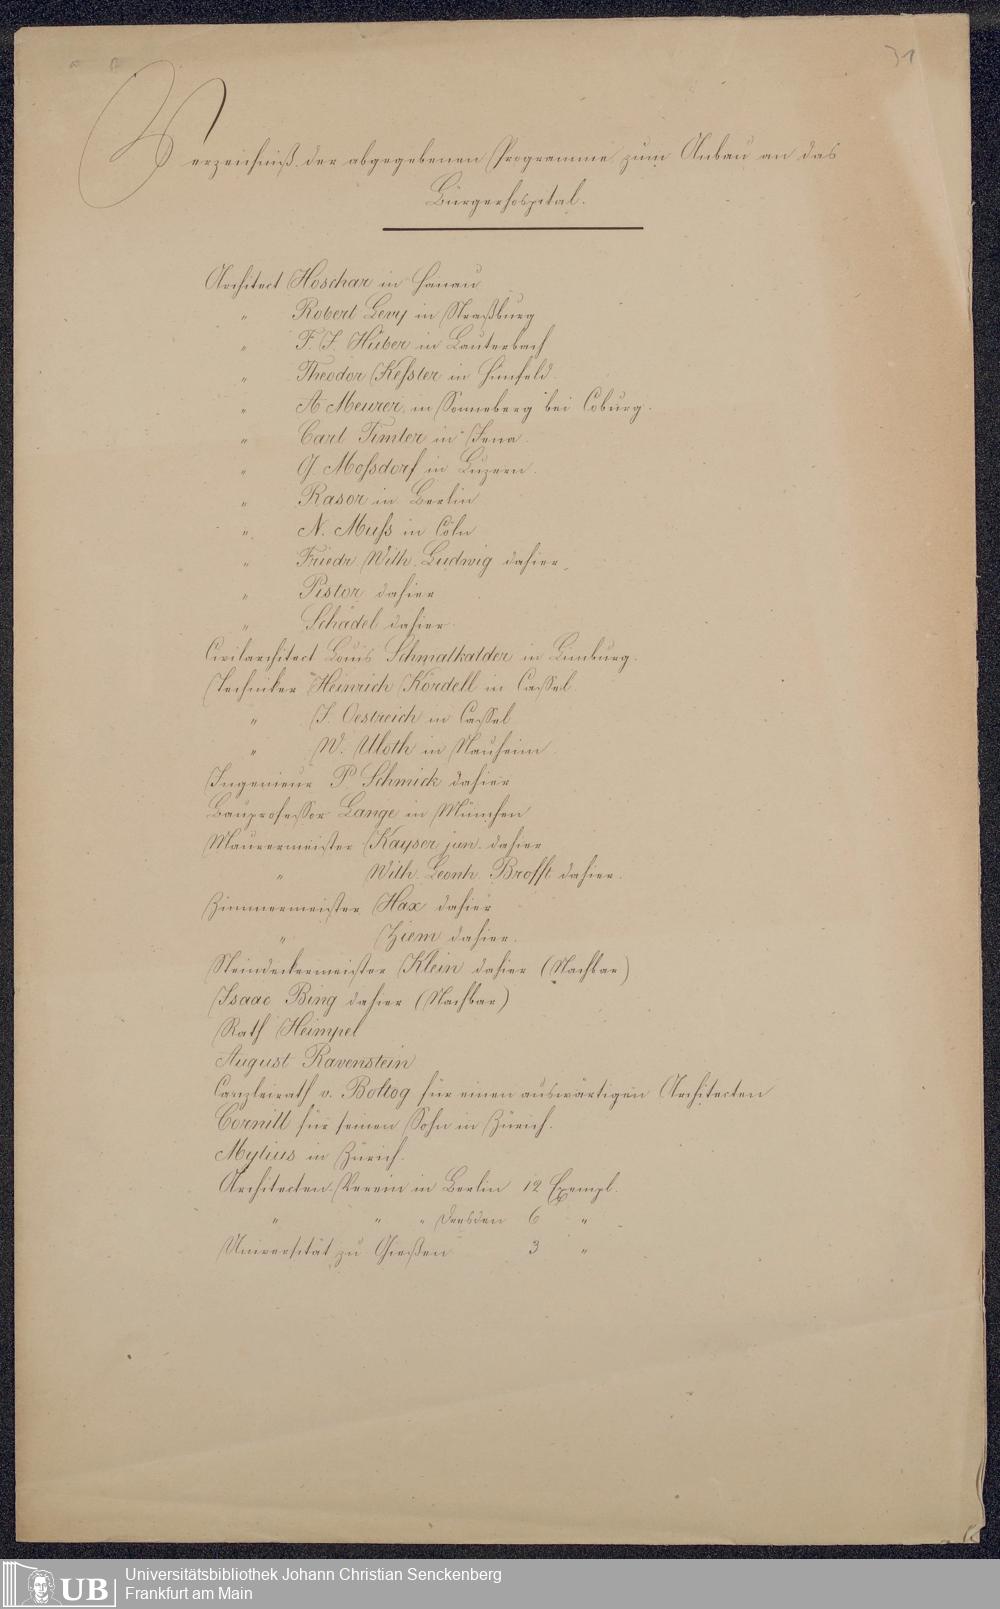 31
Verzeichniß der abgegebenen Programme zum Anbau an das
Bürgerhospital.
Architect Hoschar in Hanau
" Robert Levy in Straßburg
" F. J. Huber in Lauterbach
" Theodor Keßler in Hünfeld
" A Meurer in Sonneberg bei Coburg.
" Carl Timler in Jena.
" G Moßdorf in Luzern.
" Rasor in Berlin
" N. Muß in Cöln
" Friedr Wilh. Ludwig dahier
" Pistor dahier
" Schädel dahier
Civilarchitect Louis Schmalkalder in Limburg.
Techniker Heinrich Kördell in Cassel.
" J. Oestreich in Cassel
" W. Uloth in Nauheim
Ingenieur P Schmick dahier
Bauprofessor Lange in München
Maurermeister Kayser jun. dahier
" Wilh. Leonh. Brofft dahier.
Zimmermeister Hax dahier
" Ziem dahier.
Steindeckermeister Klein dahier (Nachbar)
Isaac Bing dahier (Nachbar)
Rath Heimpel
August Ravenstein
Canzleirath v. Boltog für einen auswärtigen Architecten
Cornill für seinen Sohn in Zürich.
Mylius in Zürich.
Architecten-Verein in Berlin 12 Exempl.
" " " Dresden 6 "
Universität zu Gießen 3 "
UB
Universitätsbibliothek Johann Christian Senckenberg
Frankfurt am Main